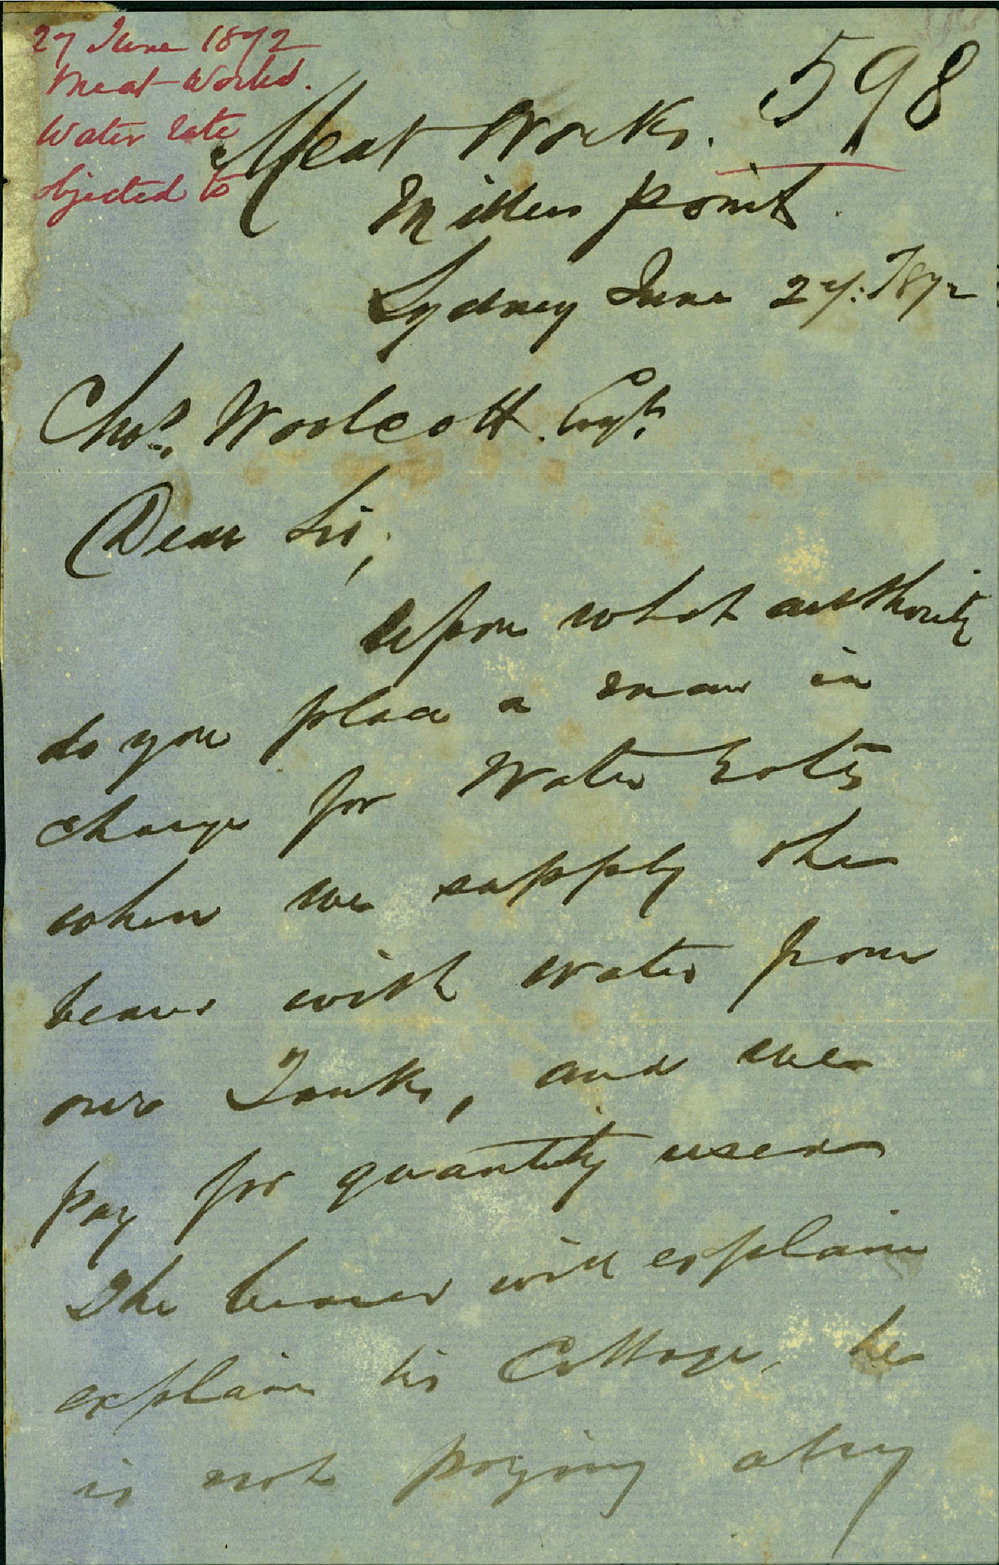 27 June 1872
Meat Works.
Water rate
objected to
598
Meat Works.
Millers Point.
Sydney June 27. 1872
Chas. Woolcott. Esqr.
Dear Sir,
Upon what authority
do you place a man in
charge for Water Rates
when we supply the
bearer with water from
our Tanks, and we
pay for quantity used
The bearer will explain
explain his Cottage, he
is not paying